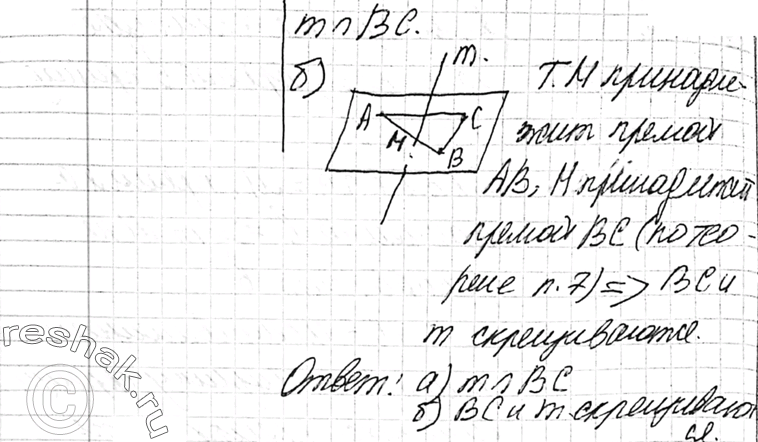 m ∩ BC.
б)
m.
A
C
M
B
Т. М принадле-
жит прямой
AB, М принадлежит
прямой BC (по тео-
реме п. 7) => BC и
m скрещиваются.
Ответ: а) m ∩ BC
б) BC и m скрещивают
ся.
reshak.ru
©